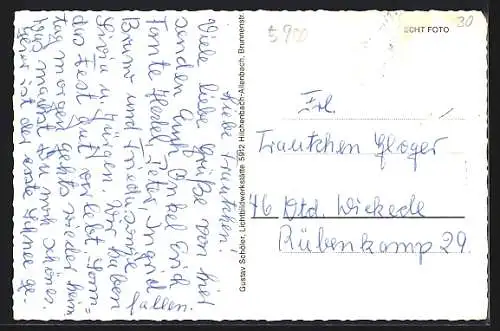 Liebe Trautchen!
Viele liebe Grüße von hier
senden Euch Onkel Erich
Tante Hedel Peter, Ingrid
Bruno und
Silvia u. Jürgen. Wir haben
das Fest gut verlebt. Sonn=
tag morgen gehts wieder heim
was machst Du noch schönes.
hier ist der erste Schnee ge-
fallen.
Gustav Schöler, Lichtbildwerkstätte 5912 Hilchenbach-Allenbach, Brunnenstr.
ECHT FOTO
30
5900
Frl.
Trautchen Gloger
46 Dtd. Wickede
Rübenkamp 29.